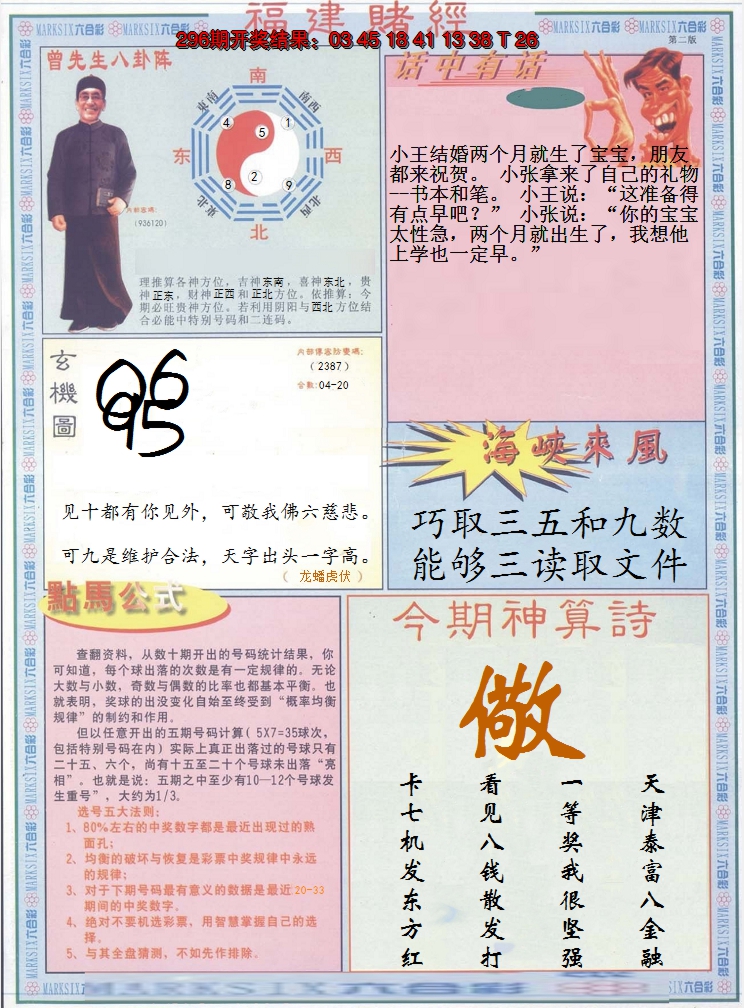 福建賭經
296期开奖结果：03 45 18 41 13 38 T 26
第二版
曾先生八卦阵
南
东南
南西
4
5
1
东
西
8
2
9
东北
北西
北
内部密碼:
(936120)
理推算各神方位，吉神东南，喜神东北，贵
神正东，财神正西和正北方位。依推算：今
期必旺贵神方位。若利用阴阳与西北方位结
合必能中特别号码和二连码。
话中有话
小王结婚两个月就生了宝宝，朋友
都来祝贺。 小张拿来了自己的礼物
一书本和笔。 小王说：“这准备得
有点早吧？” 小张说：“你的宝宝
太性急，两个月就出生了，我想他
上学也一定早。”
玄機圖
06
95
内部傳密防變碼:
(2387)
合數:04-20
见十都有你见外，可敬我佛六慈悲。
可九是维护合法，天字出头一字高。
（ 龙蟠虎伏 ）
海峡來風
巧取三五和九数
能够三读取文件
點馬公式
查翻资料，从数十期开出的号码统计结果，你
可知道，每个球出落的次数是有一定规律的。无论
大数与小数，奇数与偶数的比率也都基本平衡。也
就表明，奖球的出没变化自始至终受到“概率均衡
规律”的制约和作用。
但以任意开出的五期号码计算( 5X7=35球次，
包括特别号码在内）实际上真正出落过的号球只有
二十五、六个，尚有十五至二十个号球未出落“亮
相”。也就是说：五期之中至少有10—12个号球发
生重号”，大约为1/3。
选号五大法则：
1、80%左右的中奖数字都是最近出现过的熟
面孔；
2、均衡的破坏与恢复是彩票中奖规律中永远
的规律；
3、对于下期号码最有意义的数据是最近20-33
期间的中奖数字。
4、绝对不要机选彩票，用智慧掌握自己的选
择。
5、与其全盘猜测，不如先作排除。
今期神算詩
儌
天津泰富八金融
一等奖我很坚强
看见八钱散发打
卡七机发东方红
MARKSIX六合彩